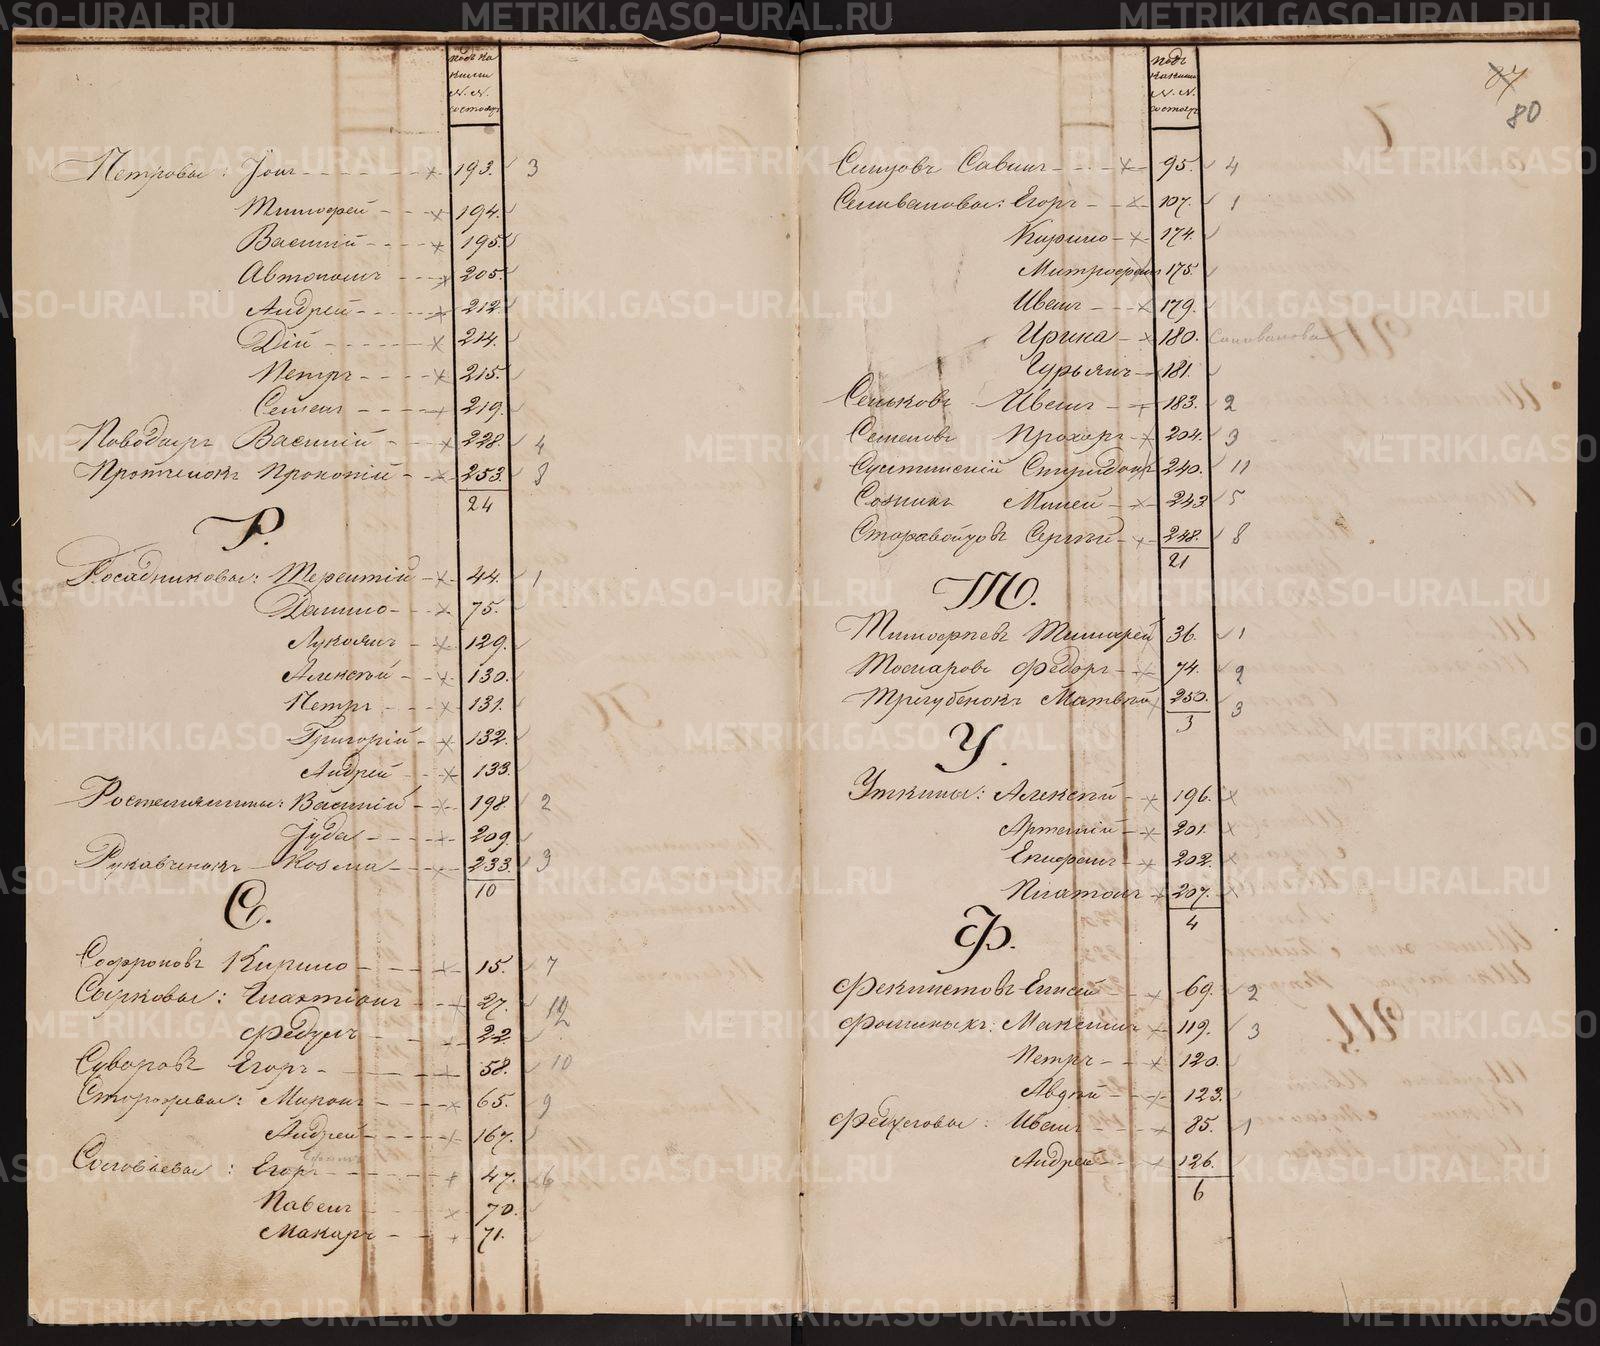 подъ ка
кими
N. N.
состоятъ
Петровы: Іонъ 193. 3
Тимофей 194.
Василій 195.
Автономъ 205.
Андрей 212.
Дій 214.
Петръ 215.
Семенъ 219.
Поводыръ Василій 228. 4
Протченокъ Прокопій 253. 8
24
Р.
Росадниковы: Терентій 44. 1
Данило 75.
Лукоянъ 129.
Алексѣй 130.
Петръ 131.
Григорій 132.
Андрей 133.
Василій 198. 2
Іуда 209.
Рукавченокъ Козма 233. 3
10
С.
Софроновъ Кирило 15. 7
Сырковы: Галактіонъ 27. 12
Федулъ 22.
Суворовъ Егоръ 58. 10
Сторожевы: Миронъ 65. 9
Андрей 167.
Соловьевы: Егоръ 47. 6
Павелъ 70.
Макаръ 71.
подъ
какими
N. N.
состоятъ
87
80
Савинъ 95. 4
Селивановы: Егоръ 107. 1
Кирило 174.
Митрофанъ 175.
Иванъ 179.
Ирика 180. Селиванова
Гурьянъ 181.
Сельковъ Иванъ 183. 2
Семеновъ Прохоръ 204. 3
Спиридонъ 240. 11
Созникъ Миней 243 5
Старавойтовъ Сергѣй 248. 8
21
Т.
Тимофѣевъ Тимофей 36. 1
Токаровъ Федоръ 74. 2
Тригубенокъ Матвѣй 250. 3
3
У.
Уткины: Алексѣй 196.
Артемій 201.
Епифанъ 202.
Платонъ 207.
4
Ф.
Феклистовъ Елисей 69. 2
Фоминыхъ: Максимъ 119. 3
Петръ 120.
Авдѣй 123.
Федуловы: Иванъ 85. 1
Андрей 126.
6